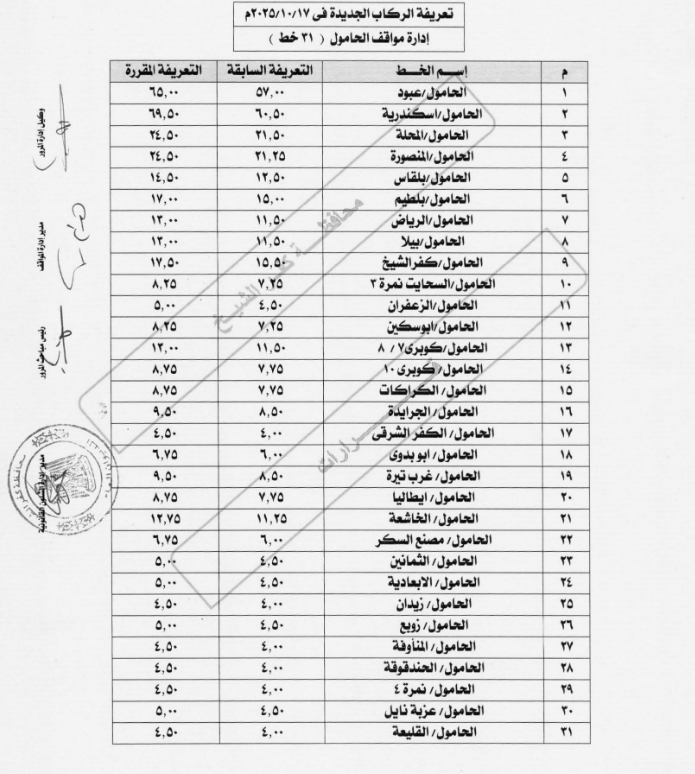 تعريفة الركاب الجديدة فى ٢٠٢٥/١٠/١٧م
إدارة مواقف الحامول ( ٣١ خط )
م إسم الخط التعريفة السابقة التعريفة المقررة
١ الحامول/عبود ٥٧,٠٠ ٦٥,٠٠
٢ الحامول/اسكندرية ٦٠,٥٠ ٦٩,٥٠
٣ الحامول/المحلة ٢١,٥٠ ٢٤,٥٠
٤ الحامول/المنصورة ٢١,٢٥ ٢٤,٥٠
٥ الحامول/بلقاس ١٢,٥٠ ١٤,٥٠
٦ الحامول/بلطيم ١٥,٠٠ ١٧,٠٠
٧ الحامول/الرياض ١١,٥٠ ١٣,٠٠
٨ الحامول/بيلا ١١,٥٠ ١٣,٠٠
٩ الحامول/كفرالشيخ ١٥,٥٠ ١٧,٥٠
١٠ الحامول/السحايت نمرة ٣ ٧,٢٥ ٨,٢٥
١١ الحامول/الزعفران ٤,٥٠ ٥,٠٠
١٢ الحامول/ابوسكين ٧,٢٥ ٨,٢٥
١٣ الحامول/كوبرى٧ / ٨ ١١,٥٠ ١٣,٠٠
١٤ الحامول/ كوبرى ١٠ ٧,٧٥ ٨,٧٥
١٥ الحامول/ الكراكات ٧,٧٥ ٨,٧٥
١٦ الحامول/ الجرايدة ٨,٥٠ ٩,٥٠
١٧ الحامول/ الكفر الشرقى ٤,٠٠ ٤,٥٠
١٨ الحامول/ ابو بدوى ٦,٠٠ ٦,٧٥
١٩ الحامول/ غرب تيرة ٨,٥٠ ٩,٥٠
٢٠ الحامول/ ايطاليا ٧,٧٥ ٨,٧٥
٢١ الحامول/ الخاشعة ١١,٢٥ ١٢,٧٥
٢٢ الحامول/ مصنع السكر ٦,٠٠ ٦,٧٥
٢٣ الحامول/ الثمانين ٤,٥٠ ٥,٠٠
٢٤ الحامول/ الابعادية ٤,٥٠ ٥,٠٠
٢٥ الحامول/ زيدان ٤,٠٠ ٤,٥٠
٢٦ الحامول/ زوبع ٤,٥٠ ٥,٠٠
٢٧ الحامول/ المناوفة ٤,٠٠ ٤,٥٠
٢٨ الحامول/ الحندقوقة ٤,٠٠ ٤,٥٠
٢٩ الحامول/ نمرة ٤ ٤,٠٠ ٤,٥٠
٣٠ الحامول/ عزبة نايل ٤,٥٠ ٥,٠٠
٣١ الحامول/ القليعة ٤,٠٠ ٤,٥٠
محافظة كفر الشيخ
قرارات
وكيل إدارة المرور
مدير إدارة المواقف
رئيس مباحث المرور